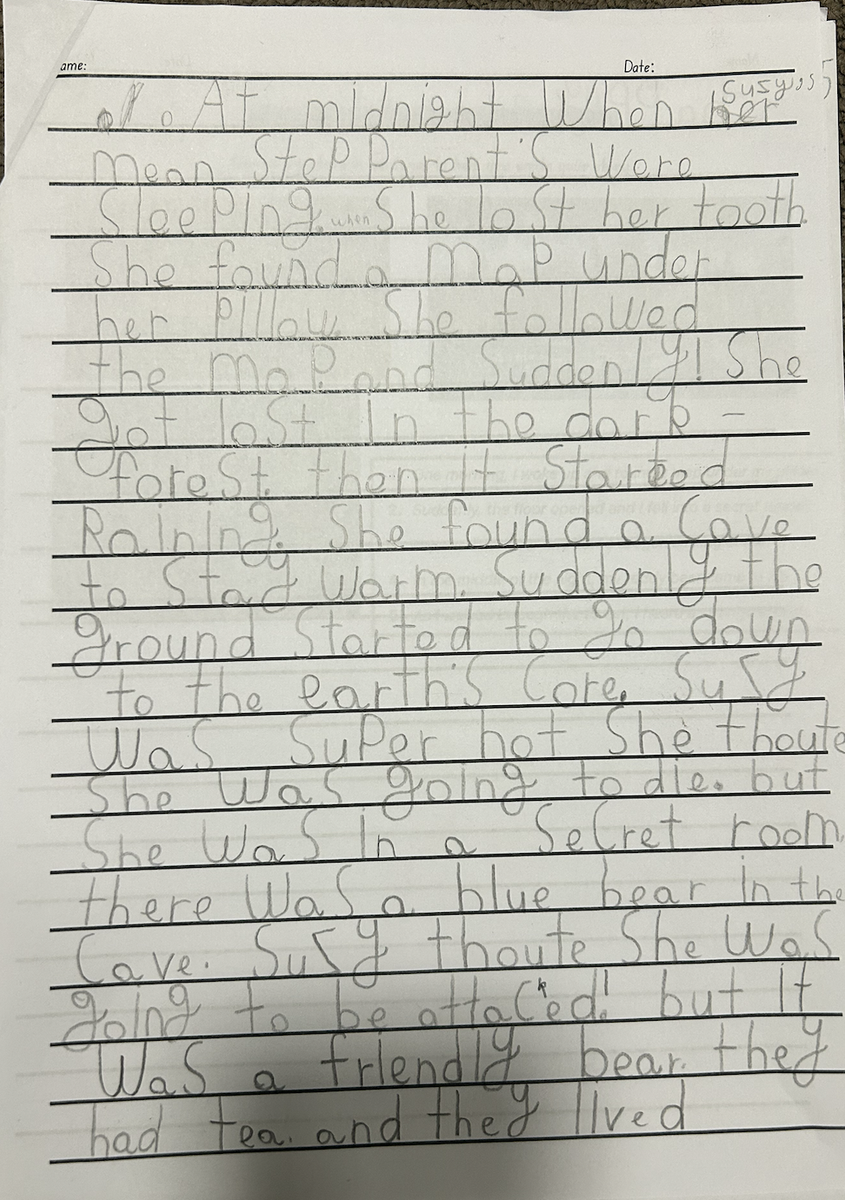 ame:
Date:
At midnight When her
mean StepParent's Were
SleePing. when She loSt her tooth.
She found a maP under
her Pillow. She followed
the maP. and Suddenly! She
got loSt In the dark -
foreSt. then it Started
Raining. She found a Cave
to Stay warm. Suddenly the
ground Started to go down
to the earth's Core. Susy
WaS SuPer hot She thoute
She WaS going to die. but
She WaS In a SeCret room.
there WaS a blue bear In the
Cave. SuSy thoute She WaS
going to be attaCked! but It
WaS a friendly bear. they
had tea. and they lived